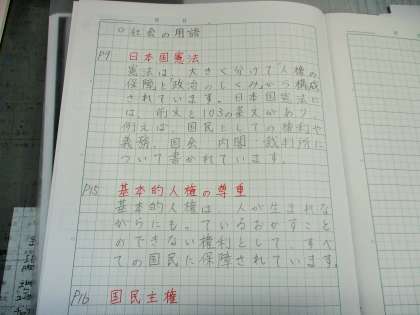 ○社会の用語
P9 日本国憲法
憲法は、大きく分けて「人権の
保障」と「政治のしくみ」から構成
されています。日本国憲法に
は、前文と103の条文があり、
例えば、国民としての権利や
義務、国会、内閣、裁判所に
ついて書かれています。
P15 基本的人権の尊重
基本的人権は、人が生まれな
がらにもっているおかすこと
のできない権利として、すべ
ての国民に保障されています。
P16 国民主権